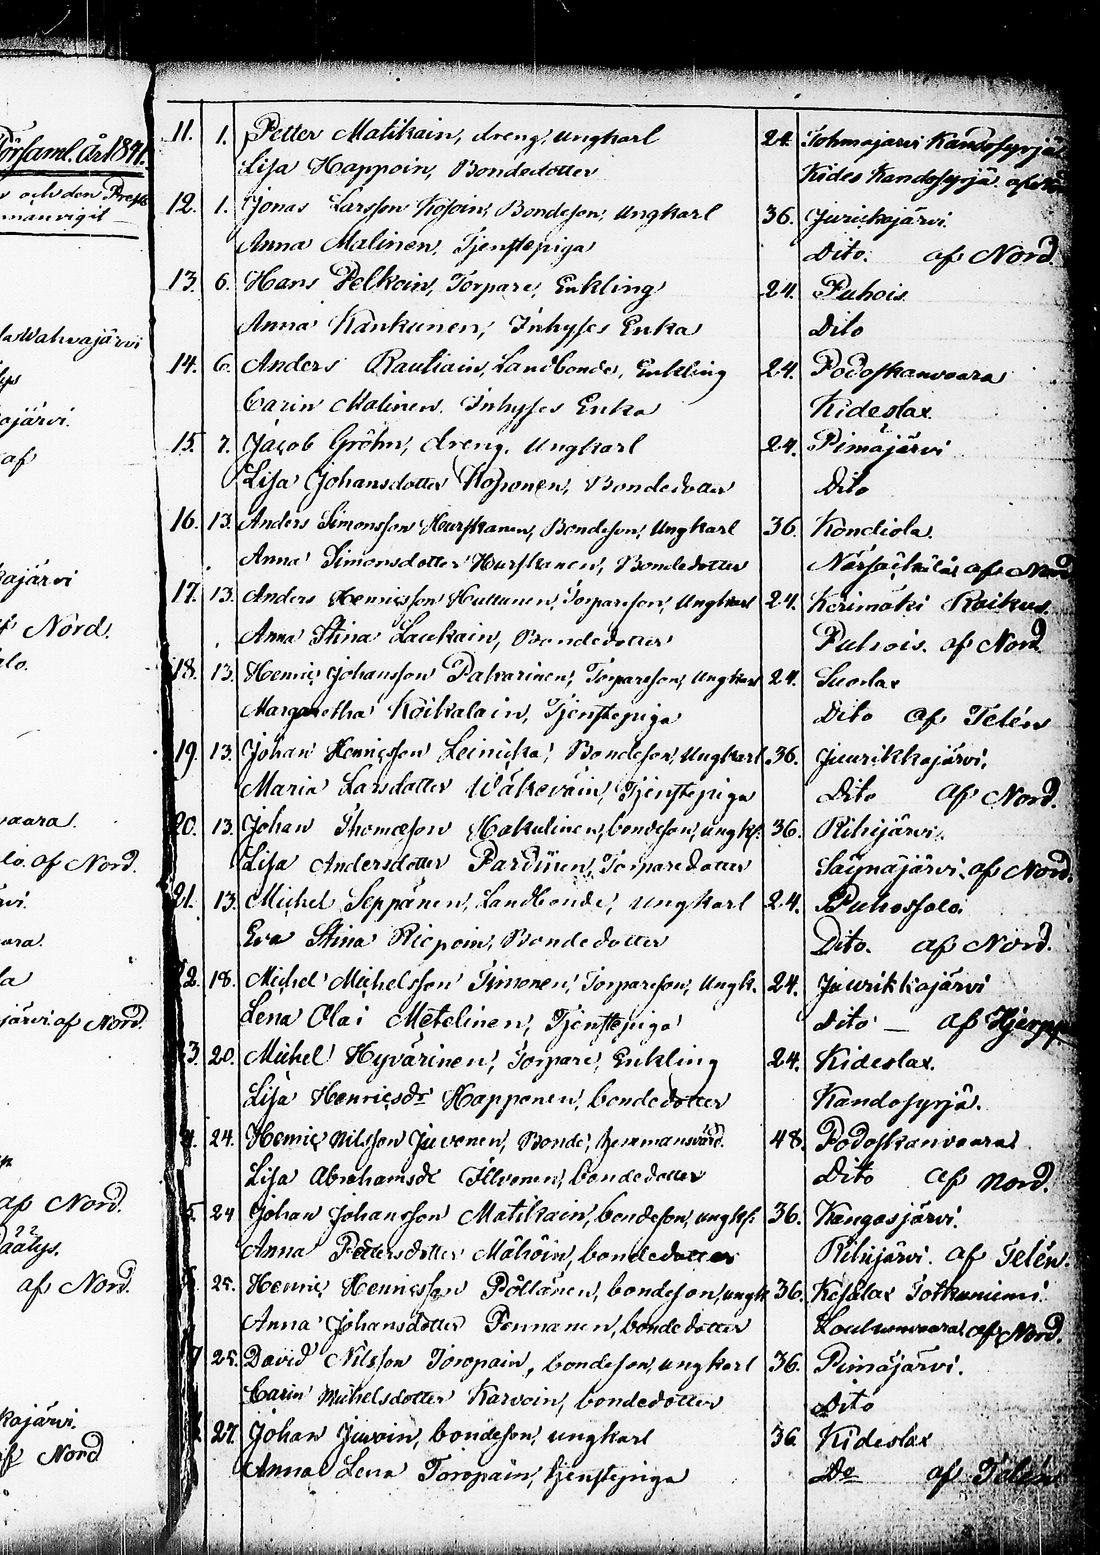 Församl. år 1841.
och den
11. 1. Petter Matikain, dreng, Ungkarl 24. Tohmajarvi Kandosyrjä
Lisa Happoin, Bondedotter Kides Kandosyrjä
12. 1. Jonas Larsson Kosoin, Bondeson, Ungkarl 36. Jurickajärvi.
Anna Malinen, Tjenstepiga Dito. af Nord.
13. 6. Hans Pelkoin, Torpare, Enkling 24. Puhois.
Anna Kankunen, Inhyses Enka Dito
14. 6. Anders Rautiain, Landbonde, Enkling 24. Podoskanvaara
Carin Malinen, Inhyses Enka Kideslax
15. 7. Jacob Gröhn, dreng, Ungkarl 24. Pimäjärvi
Lisa Johansdotter Koponen, Bondedotter Dito
16. 13. Anders Simonsson Hurskanen, Bondeson, Ungkarl 36. Kondiola.
Anna Simonsdotter Hurskanen, Bondedotter af Nord
17. 13. Anders Henricsson Huttunen, Torpareson, Ungkarl 24. Kerimäki Raikus.
Anna Stina Laukain, Bondedotter Puhois. af Nord
18. 13. Henric Johansson Pakarinen, Torpareson, Ungkarl 24. Suorlax
Margaretha Koikalain, Tjenstepiga Dito af Telén
19. 13. Johan Henricsson Leinicka, Bondeson, Ungkarl 36. Juurikkajärvi.
Maria Larsdotter Wäkeväin, Tjenstepiga Dito af Nord.
20. 13. Johan Thomæson Hakulinen, bondeson, ungk. 36. Rihijärvi.
Lisa Andersdotter Pardinen, Torparedotter Säynäjärvi. af Nord.
21. 13. Michel Seppänen, Landbonde, Ungkarl 24. Puhossalo.
Eva Stina Riepoin, Bondedotter Dito. af Nord.
22. 18. Michel Michelsson Timonen, Torpareson, Ungk. 24. Juurikkajärvi
Lena Olai Metelinen, Tjenstepiga Dito — af Hjerpp
3. 20. Michel Hyvärinen, Torpare, Enkling 24. Kideslax.
Lisa Henricsdr Happonen, bondedotter Kandosyrjä.
4. 24. Henric Nilsson Juvonen, Bonde, hemmansvärd. 48. Podoskanvaara
Lisa Abrahamsdr Ilvonen, bondedotter Dito af Nord.
5. 24 Johan Johansson Matikain, bondeson, ungk. 36. Kangasjärvi.
Anna Pettersdotter Mähöin, bondedotter Rihijärvi. af Telén.
25. Henric Henricsson Pöllänen, bondeson, ungk 36. Kesälax Totkuniemi.
Anna Johansdotter Pennanen, bondedotter af Nord.
7 25. David Nilsson Toropain, bondeson, ungkarl 36. Pimäjärvi.
Carin Michelsdotter Karvoin, bondedotter Dito
27. Johan Juvoin, bondeson, ungkarl 36 Kideslax
Anna Lena Toropain, tjenstepiga Do af Telén
Wahvajärvi
ajärvi.
af
kajärvi
af Nord.
alo.
vaara.
lo. af Nord.
rvi.
aara.
la
järvi. af Nord.
af Nord.
af Nord.
kajärvi.
af Nord